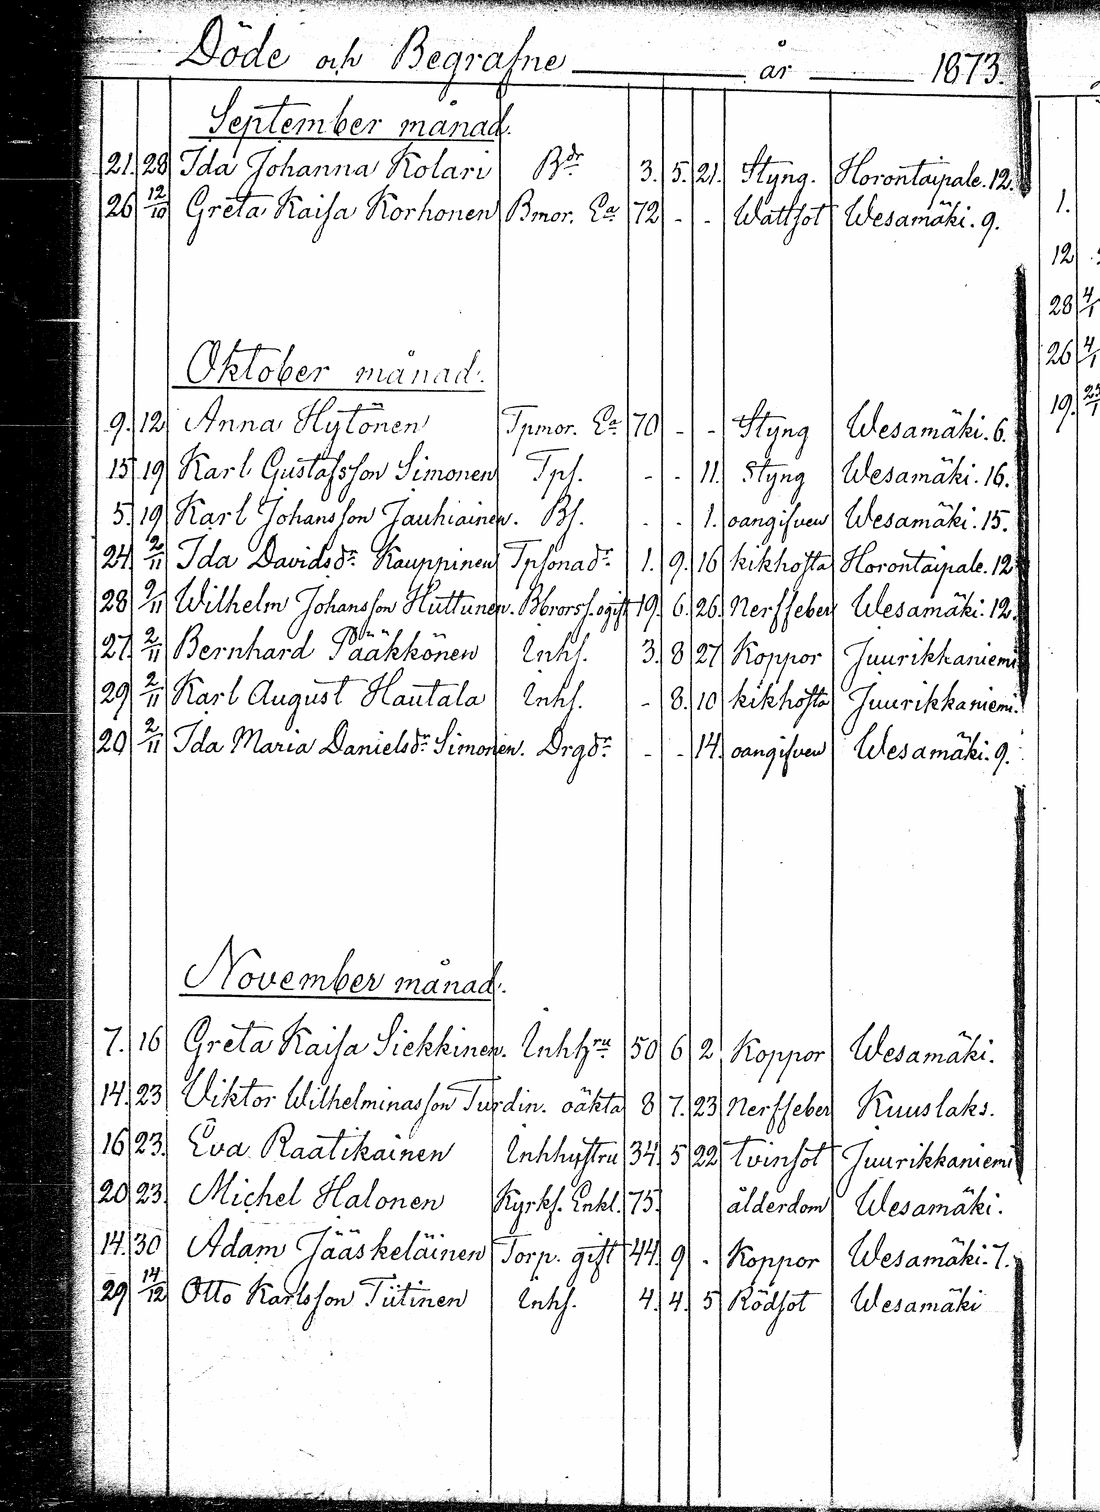 Döde och Begrafne år 1873.
September månad.
21. 28 Ida Johanna Kolari Bdr 3. 5. 21. Styng. Horontaipale. 12.
26 12/10 Greta Kaisa Korhonen Bmor. Ea 72 - - Wattsot Wesamäki. 9.
Oktober månad.
9. 12 Anna Hytönen Tpmor. Ea 70 - - Styng Wesamäki. 6.
15 19 Karl Gustafsson Simonen Tps. - - 11. Styng Wesamäki. 16.
5. 19 Karl Johansson Jauhiainen. Bs. - - 1. oangifven Wesamäki. 15.
24. 2/11 Ida Davidsdr Kauppinen Tpsonadr 1. 9. 16 kikhosta Horontaipale. 12
28 2/11 Wilhelm Johansson Huttunen. Bbrors. ogift 19. 6. 26. Nerffeber Wesamäki. 12.
27. 2/11 Bernhard Pääkkönen Inhs. 3. 8 27 Koppor Juurikkaniemi
29 2/11 Karl August Hautala Inhs. - 8. 10 kikhosta Juurikkaniemi.
20 2/11 Ida Maria Danielsdr Simonen. Drgdr - - 14. oangifven Wesamäki. 9.
November månad.
7. 16 Greta Kaisa Siekkinen. Inhhru 50 6 2 Koppor Wesamäki.
14. 23 Viktor Wilhelminasson Turdin. oäkta 8 7. 23 Nerffeber Kuuslaks.
16 23. Eva Raatikainen Inhhustru 34. 5 22 Tvinsot Juurikkaniemi
20 23. Michel Halonen Kyrkf. Enkl. 75. ålderdom Wesamäki.
14. 30 Adam Jääskeläinen Torp. gift 44. 9 - Koppor Wesamäki. 7.
29 14/12 Otto Karlsson Tiitinen Inhs. 4. 4. 5 Rödsot Wesamäki
1.
12
28 4/1
26 4/1
19.